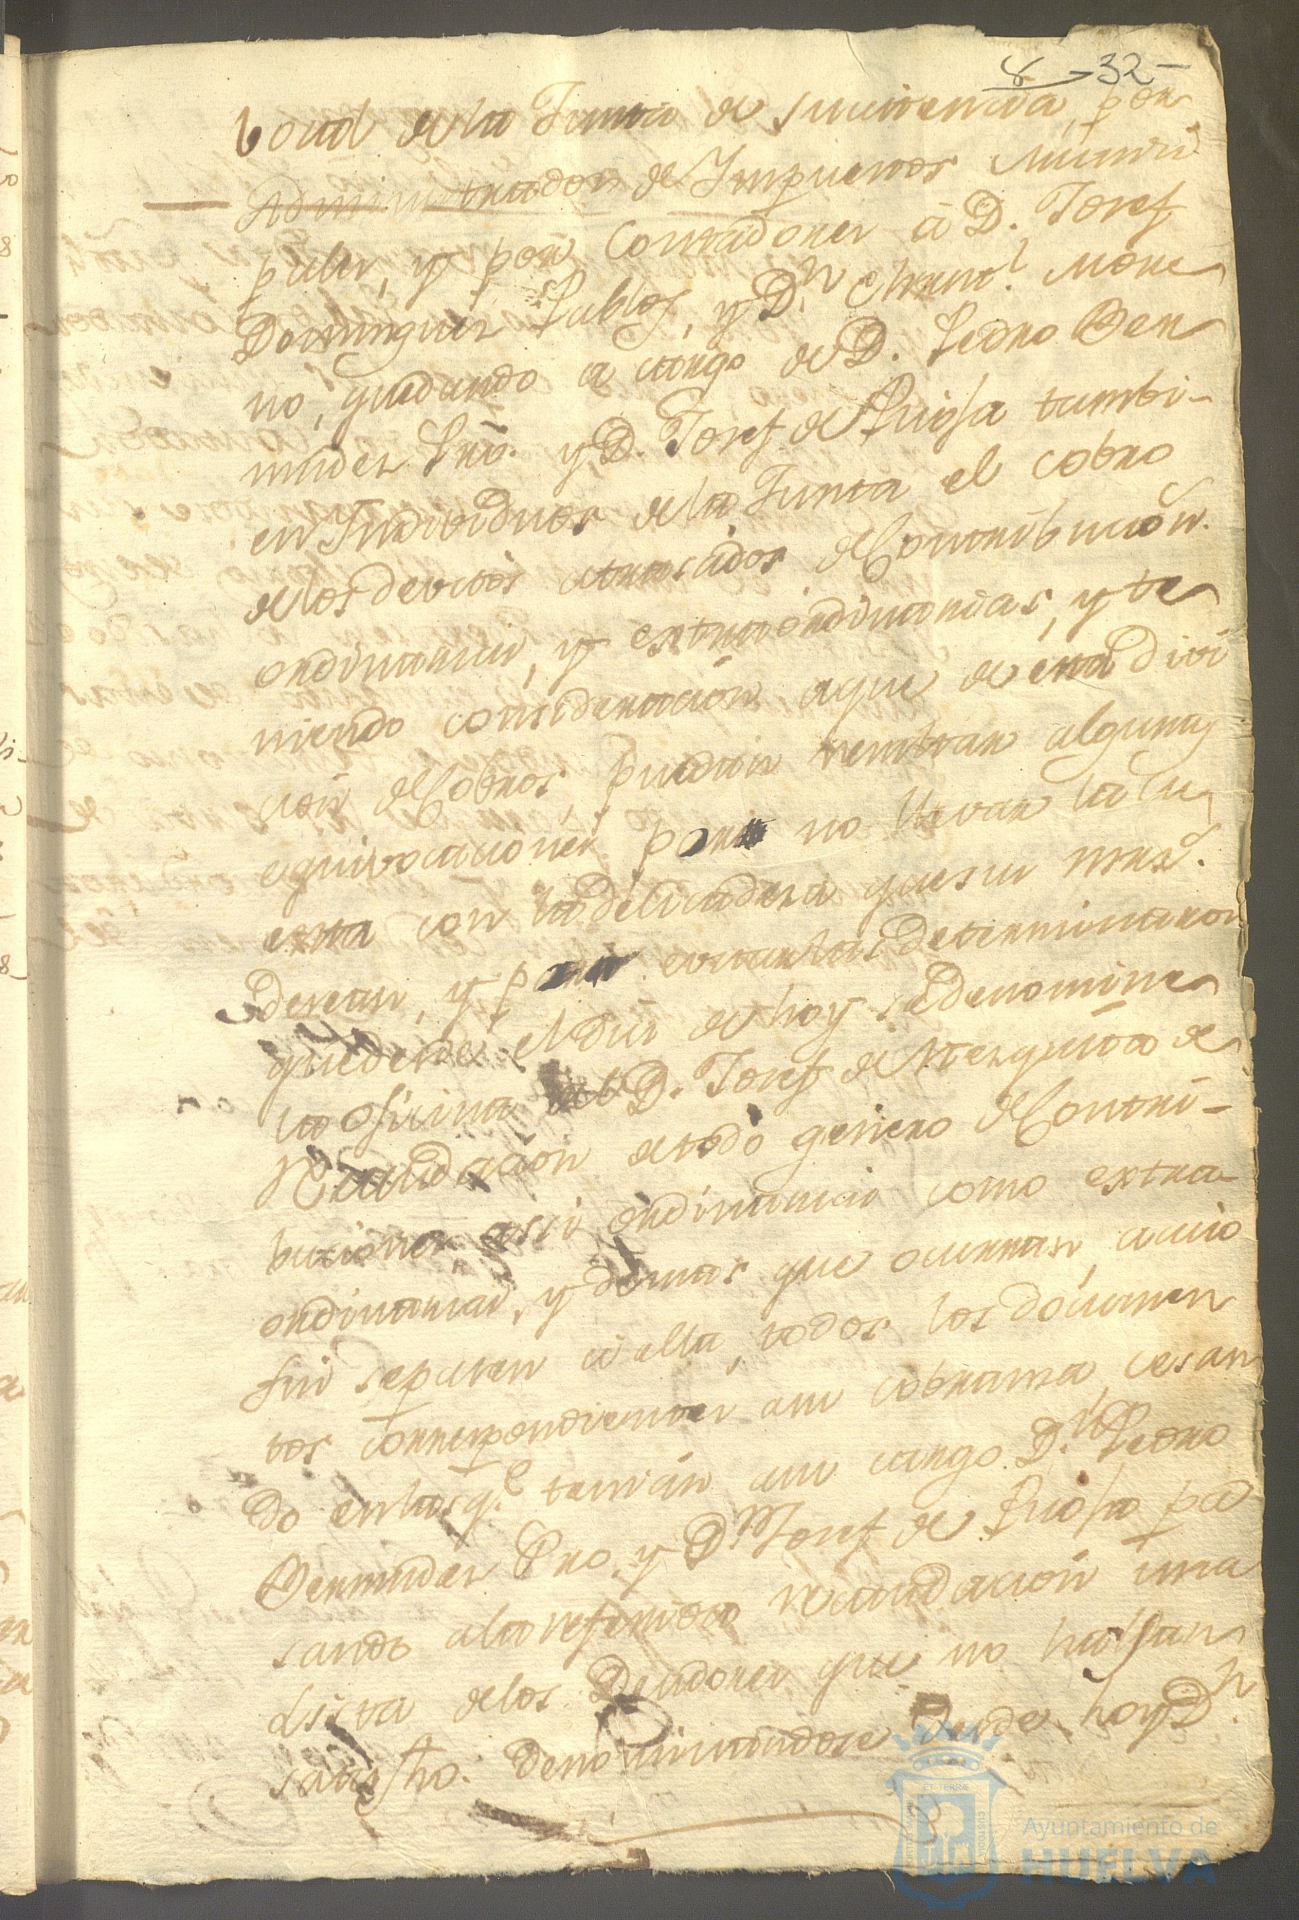 8 32-
bocal de la Junta de Suvcistencia, por
Administrador de Impuestos Munici
pales, y por Contadores à D. Josef
Dominguez Pablos, y D.n Christ.l More
no, quedando a cargo de D. Pedro Ber
mudez Prno. y D. Josef de Rioja tambi-
en Individuos de la Junta el cobro
de los devitos atrasados de Contribución
ordinaria, y extraordinarias, y te
niendo consideración aque de esta divi
ción de Cobros, puedan resultar algunas
equivocaciones para no llevar la cu
enta con la delicadeza que sus mrds.
desean, y para evitarlas determinaron
quedesde el dia de hoy sedenomine
la oficina del D. Josef de Mezquita de
Recaudación de todo genero de Contri-
buciones, assi ordinarias como extra-
ordinarias, y demas que ocurran, a cuio
fin sepasen a ella, todos los documen
tos correspondientes asu cobranza, cesan
do en las q.e tenian asu cargo D.n Pedro
Bermudez Pno. y D.n Josef de Rioja pa
sando ala referida recaudación una
Lista de los Deudores que no han
satisfho. denominandose desde hoy D.n
Ayuntamiento de
HUELVA